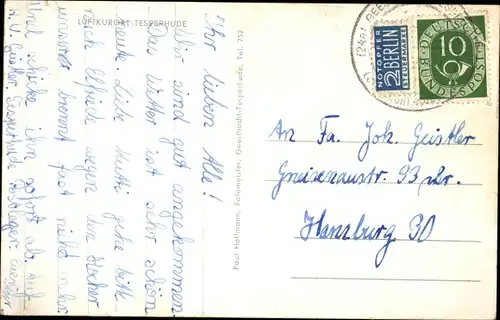 LUFTKURORT TESPERHUDE
Ihr lieben Alle!
Wir sind gut angekommen.
Das Wetter ist sehr schön
heute. Liebe Mutti gehe bitte
nach Elfriede wegen den Kocher
unserer brennt fast nicht mehr
Und schicke ihn sofort ab. Auf
Paul Hoffmann, Geesthacht-Tesperhude, Tel. 252
NOTOPFER
2 BERLIN
STEUERMARKE
DEUTSCHE BUNDESPOST
10
An Fa. Joh. Geistler
Gneisenaustr. 93 ptr.
Hamburg 30